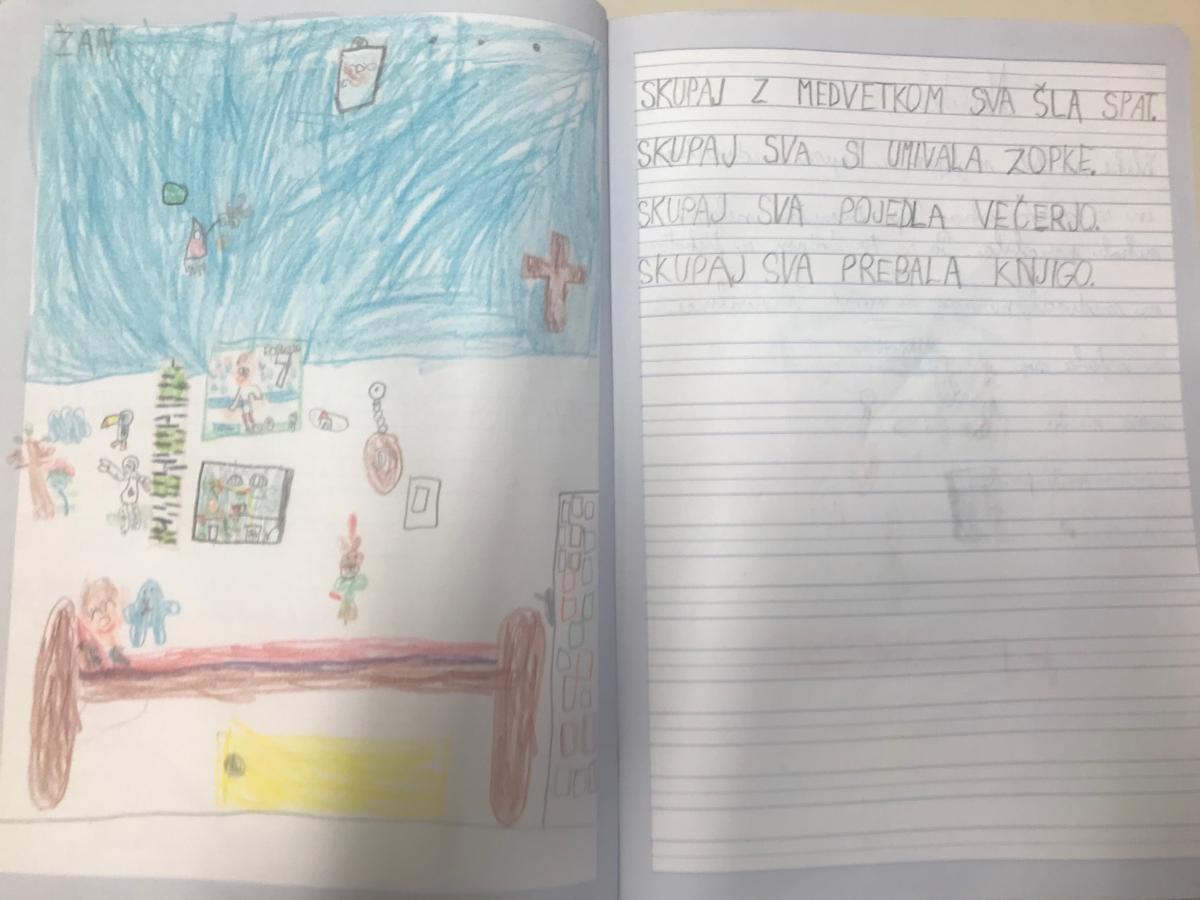 ŽAN
SKUPAJ Z MEDVETKOM SVA ŠLA SPAT.
SKUPAJ SVA SI UMIVALA ZOPKE.
SKUPAJ SVA POJEDLA VEČERJO.
SKUPAJ SVA PREBALA KNJIGO.
7